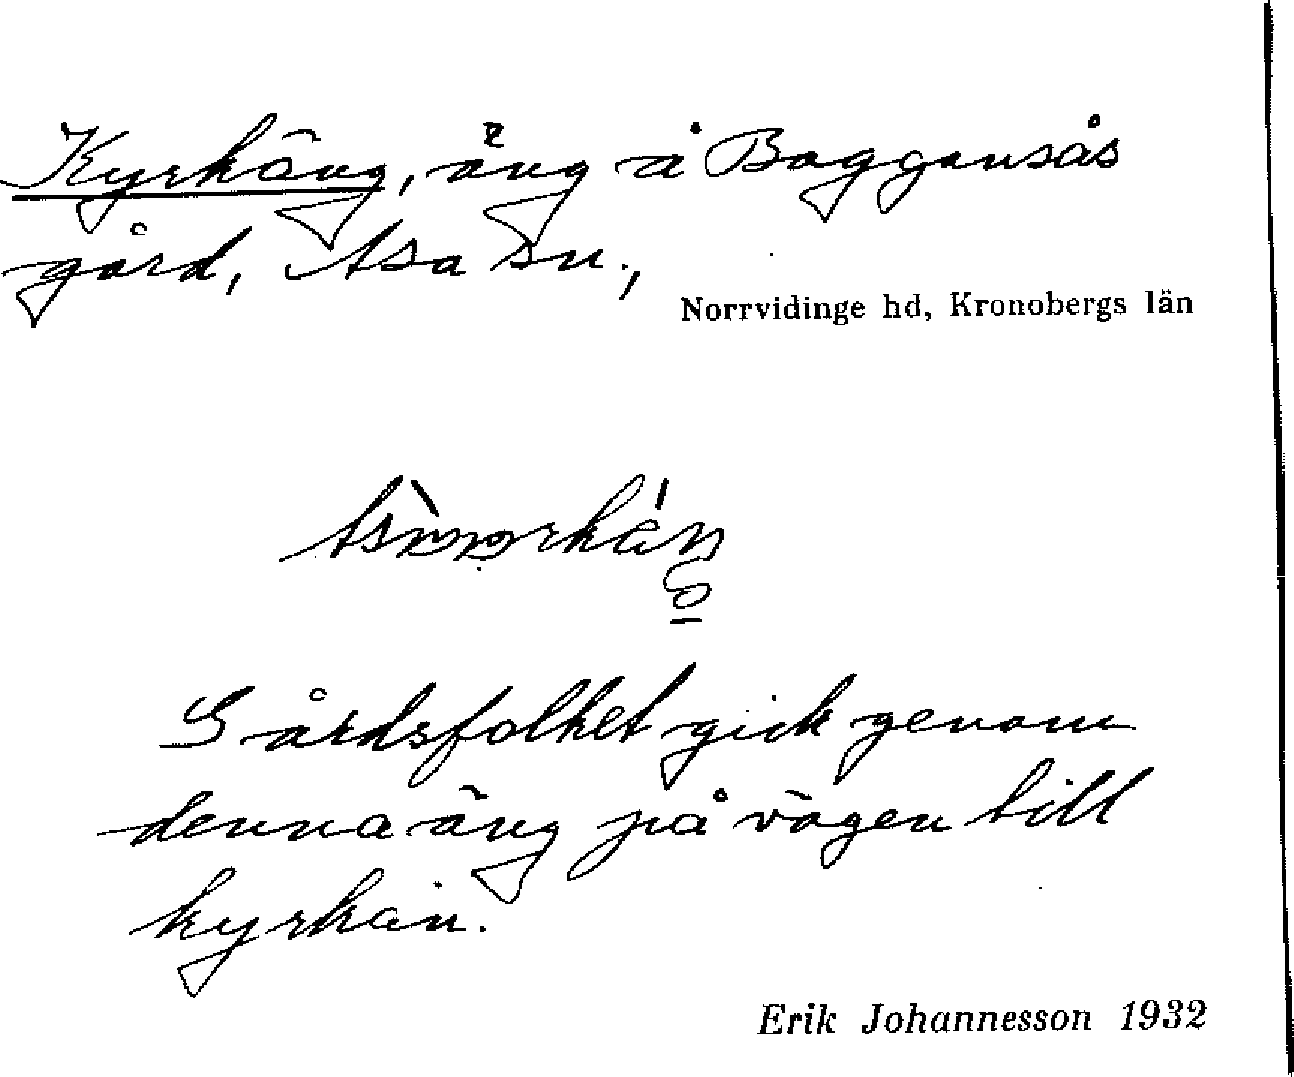 Kyrkäng, äng å Baggansås
gård, Asa sn.,
Norrvidinge hd, Kronobergs län
Gårdsfolket gick genom
denna äng på vägen till
kyrkan.
Erik Johannesson 1932